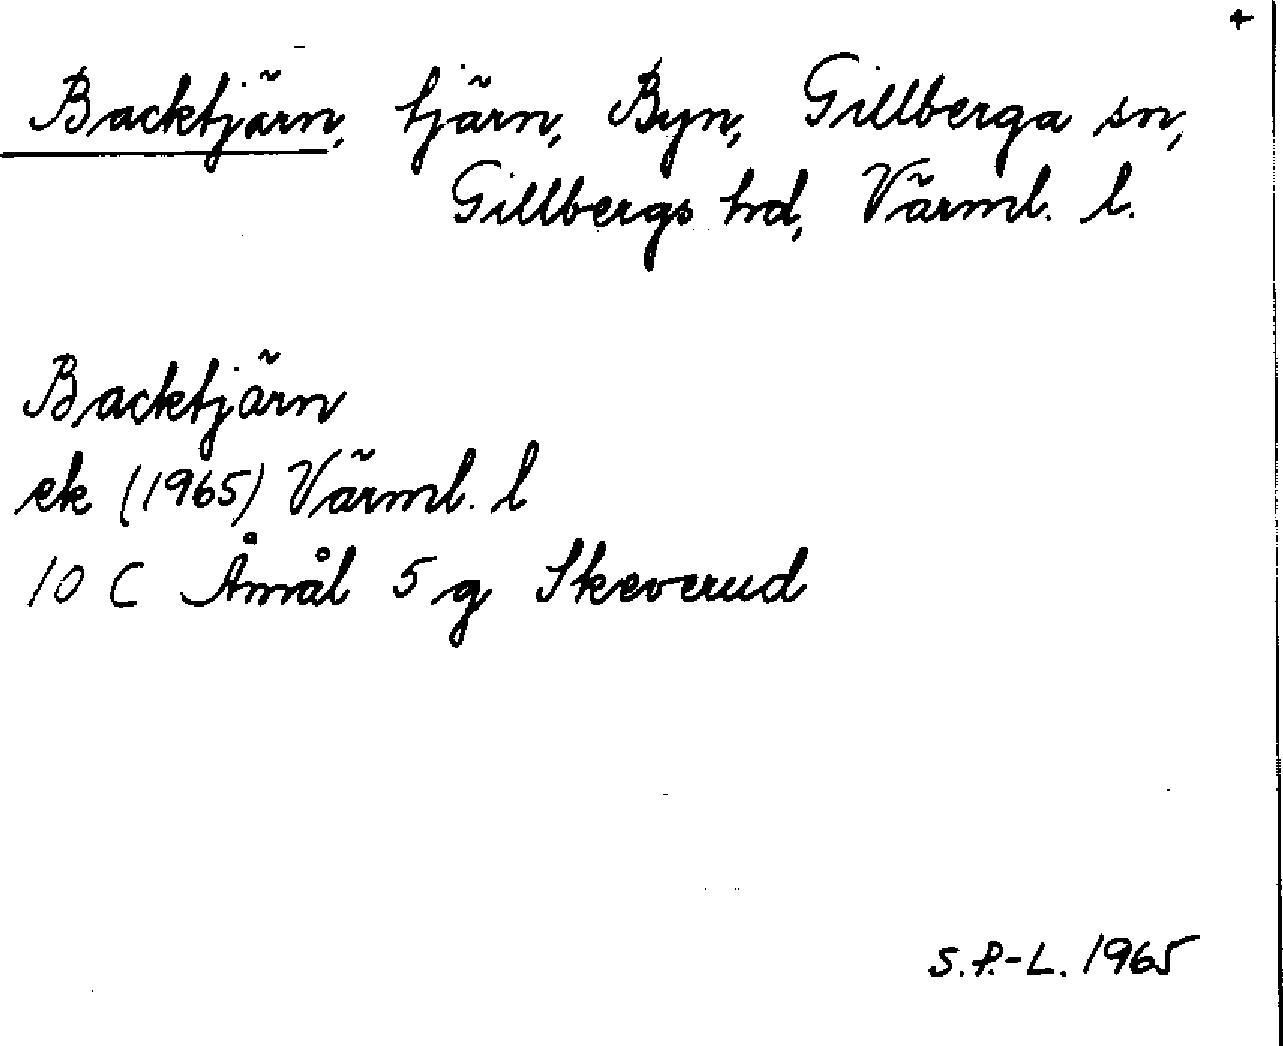 +
Backtjärn, tjärn, Byn, Gillberga sn,
Gillbergs hd, Värml. l.
Backtjärn
ek (1965) Värml. l
10 C Åmål 5 g Skeverud
S.P.-L. 1965